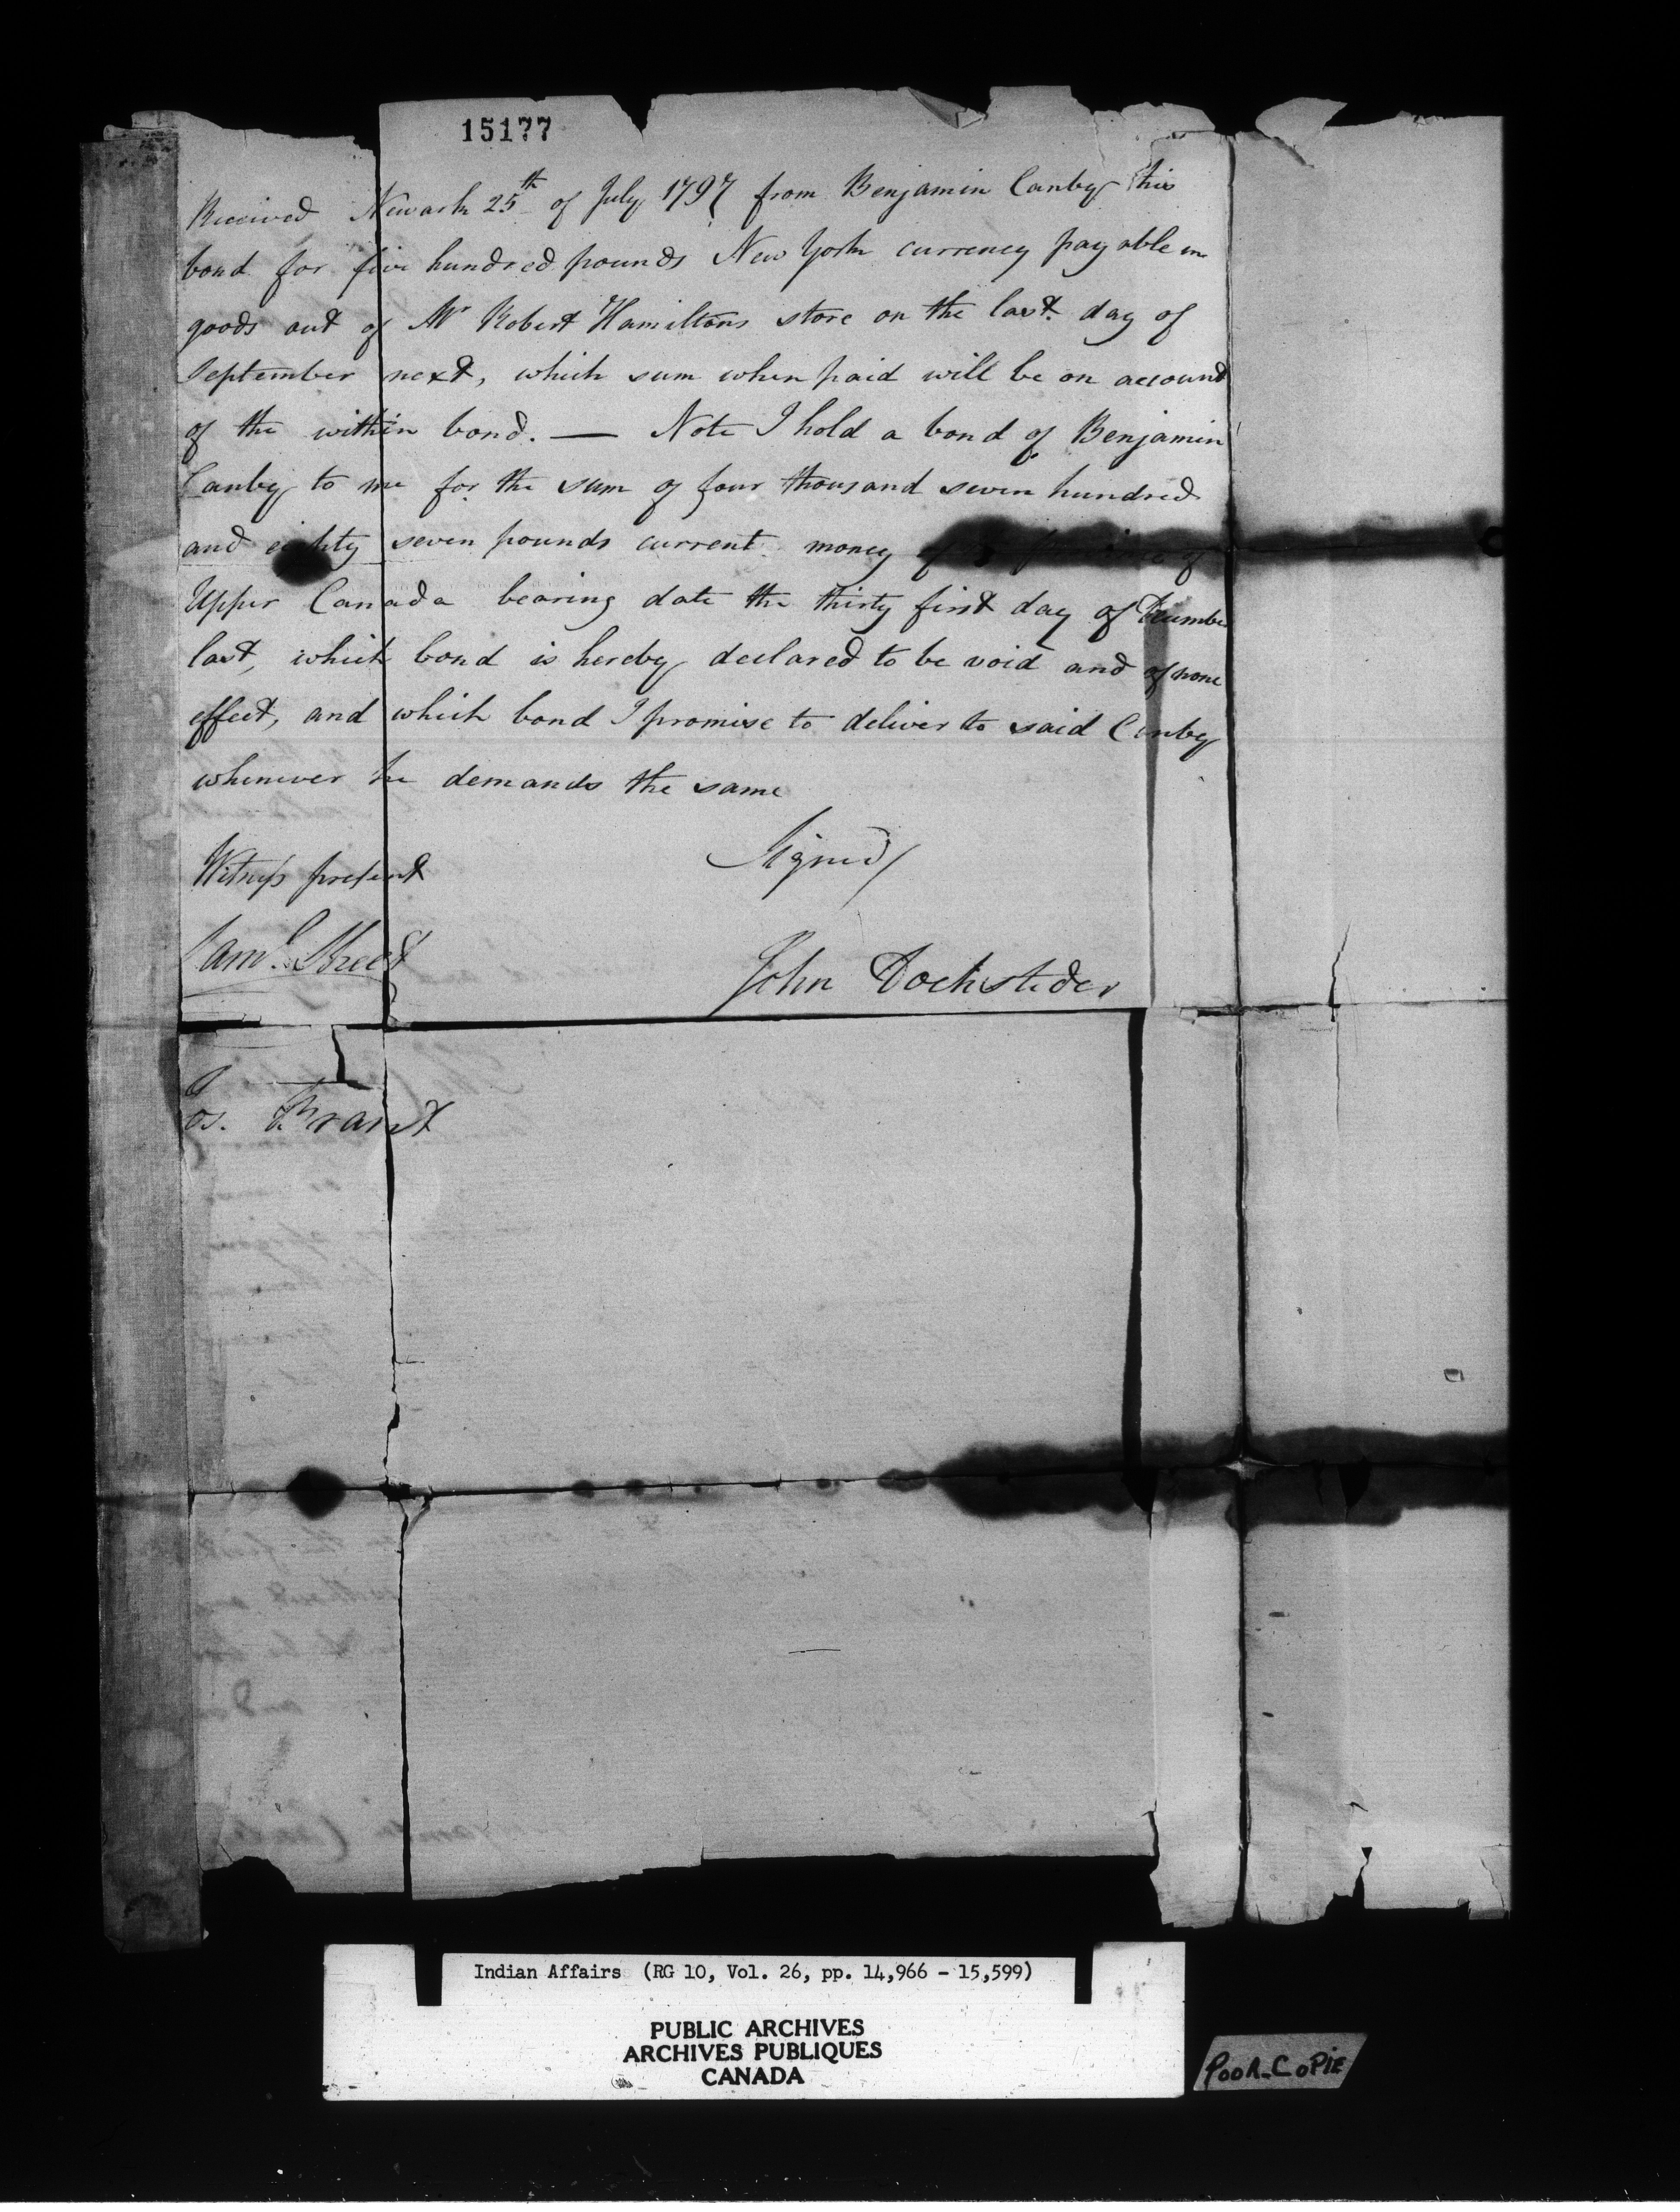 15177
Received Newark 25th of July 1797 from Benjamin Canby his
bond for five hundred pounds New York currency payable in
goods out of Mr Robert Hamiltons store on the last day of
September next, which sum when paid will be on account
of the within bond. — Note I hold a bond of Benjamin
Canby to me for the sum of four thousand seven hundred
and eighty seven pounds current money of
Upper Canada bearing date the thirty first day of December
last, which bond is hereby declared to be void and of none
effect, and which bond I promise to deliver to said Canby
whenever he demands the same
Witness present
Signed/
Saml. Street
John Dochsteder
Jos. Brant
Indian Affairs (RG 10, Vol. 26, pp. 14,966 - 15,599)
PUBLIC ARCHIVES
ARCHIVES PUBLIQUES
CANADA
POOR_COPIE